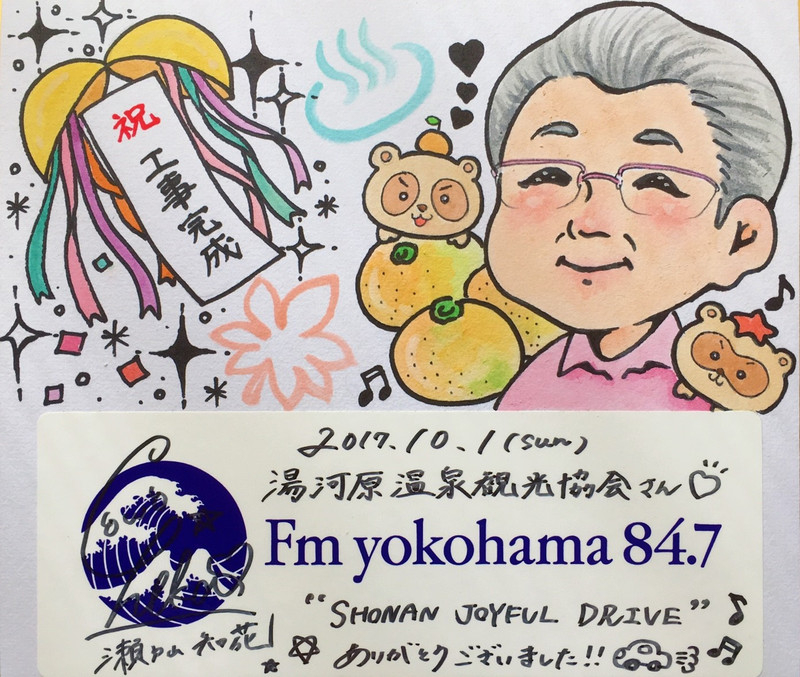 祝
工事完成
2017.10.1(sun)
湯河原温泉観光協会さん
Fm yokohama 84.7
"SHONAN JOYFUL DRIVE"
瀬戸山 知花
ありがとうございました!!